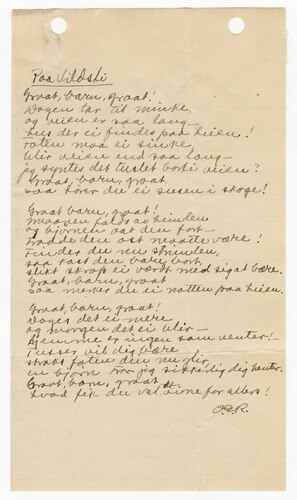 Paa Vildsti
Graat, barn, graat!
Dagen tar til minke,
og veien er saa lang —
hus der ei findes paa heien!
Foten maa ei sinke,
blir veien end saa lang —
jeg syntes det tuslet borti veien?
Graat, barn, graat,
saa hører du ei susen i skoge!
Graat, barn, graat!
maanen faldt av himlen
og bjørnen aat den fort —
Findes du nu
saa rask den barn bort,
slikt er værdt med sigat bære.
Graat, barn, graat
saa merker du ei natten paa heien.
Graat, barn, graat!
Dages det ei mere,
og morgen det ei blir —
hjemme er ingen som venter!
Tusser vil dig bære
straks foten din nu glir,
en bjørn tror jeg sikkerlig dig henter.
Graat, barn, graat,
hvad fik du vel vinne for allers!